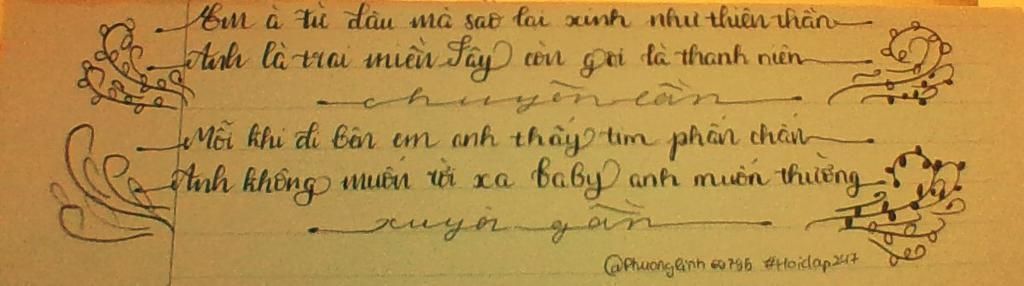 Em à từ đâu mà sao lại xinh như thiên thần
Anh là trai miền Tây còn gọi là thanh niên
chuyên cần
Mỗi khi đi bên em anh thấy tim phấn chấn
Anh không muốn rời xa baby anh muốn thường
xuyên gần
@Phuonglinh60795 #Hoidap247